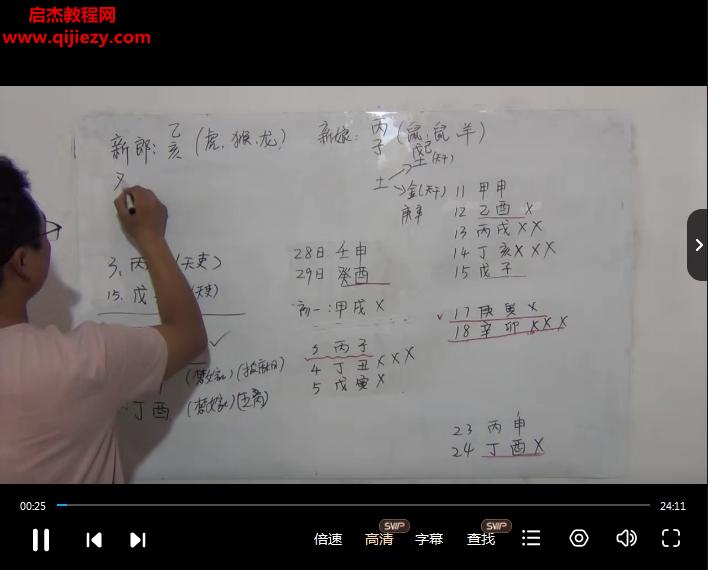 启杰教程网
www.qijiezy.com
新郎: 乙亥 (虎, 猴, 龙)
新娘: 丙子 (鼠, 鼠, 羊)
戊己
土 土(天干)
金(天干)
庚辛
11 甲申
12 乙酉 X
13 丙戌 X X
14 丁亥 X X X
15 戊子
17 庚寅 X
18 辛卯 X X X
23 丙申
24 丁酉 X
28日 壬申
29日 癸酉
初一: 甲戌 X
3 丙子
4 丁丑 X X X
5 戊寅 X
3、丙
15、戊
丁酉
00:25
24:11
倍速
SVIP
高清
字幕
SVIP
查找